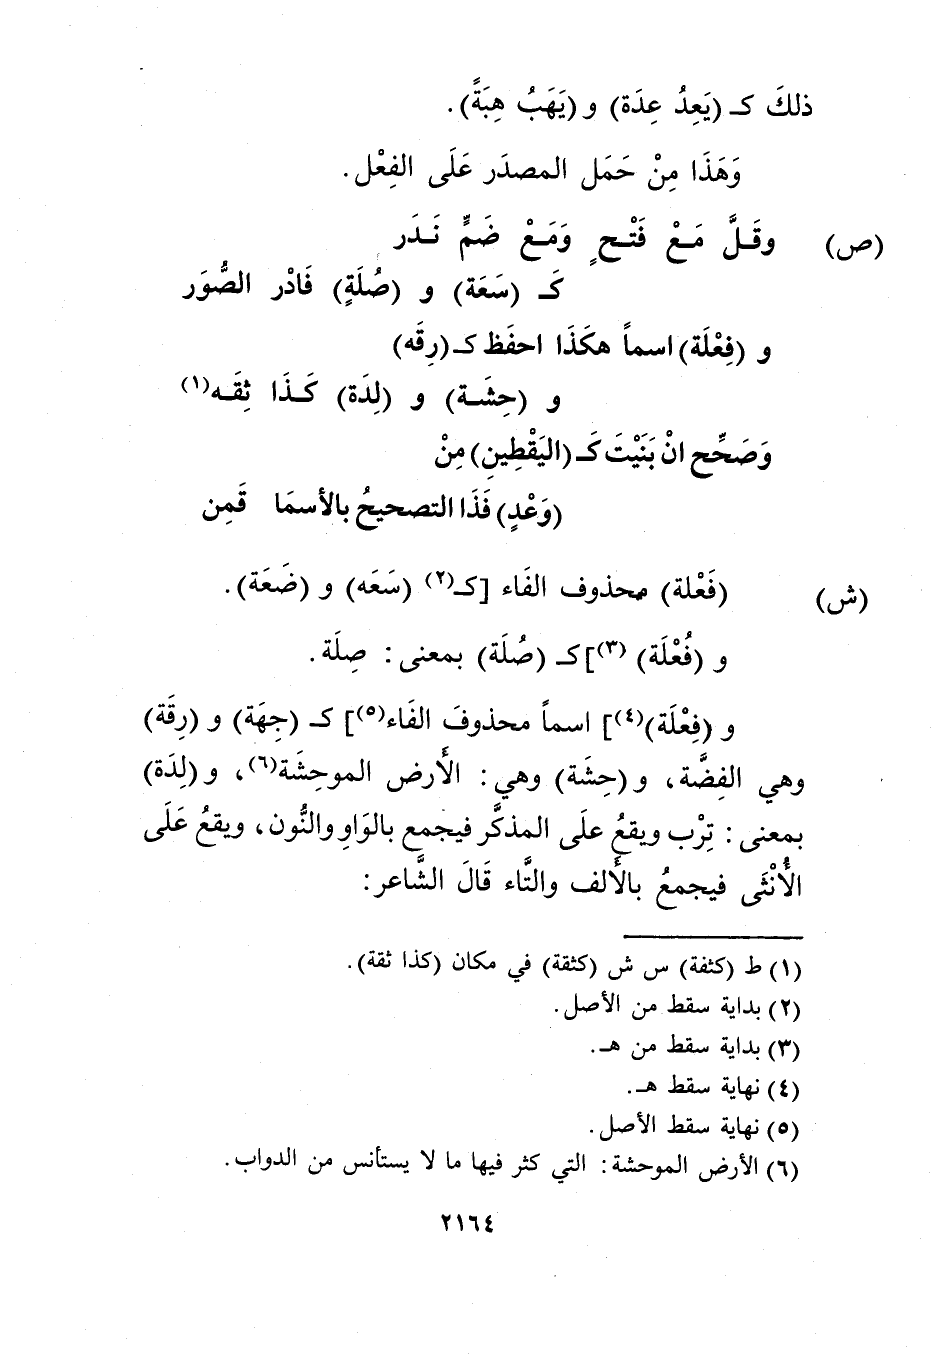 ذلكَ كـ (يَعِدُ عِدَة) و (يَهَبُ هِبَةً).
وَهَذَا مِنْ حَمَل المصدَر عَلَى الفِعْل.
(ص) وقَـلَّ مَـعْ فَتْـحٍ وَمَـعْ ضَمٍّ نَـدَر
كَـ (سَعَة) و (صُلَةٍ) فَادْر الصُّوَر
و (فِعْلَة) اسماً هكَذَا احفَظ كـ (رِقَه)
و (حِشَـة) و (لِدَة) كَـذَا ثِقَـه(١)
وَصَحِّح انْ بَنَيْتَ كَـ (اليَقْطِين) مِنْ
(وَعْدٍ) فَذَا التصحيحُ بالأسمَا قَمِن
(ش) (فَعْلة) محذوف الفَاء [كـ(٢) (سَعَه) و (ضَعَة).
و (فُعْلَة) (٣)] كـ (صُلَة) بمعنى: صِلَة.
و (فِعْلَة)(٤)] اسماً محذوفَ الفَاء(٥)] كـ (جِهَة) و (رِقَة)
وهي الفِضَّة، و (حِشَة) وهي: الأَرض الموحِشَة(٦)، و (لِدَة)
بمعنى: تِرْب ويقعُ علَى المذكَّر فيجمع بالوَاو والنُّون، ويقعُ عَلَى
الأُنْثَى فيجمعُ بالأَلف والتَّاء قَالَ الشَّاعر:
(١) ط (كثفة) س ش (كثقة) في مكان (كذا ثقة).
(٢) بداية سقط من الأصل.
(٣) بداية سقط من هـ.
(٤) نهاية سقط هـ.
(٥) نهاية سقط الأصل.
(٦) الأرض الموحشة: التي كثر فيها ما لا يستأنس من الدواب.
٢١٦٤